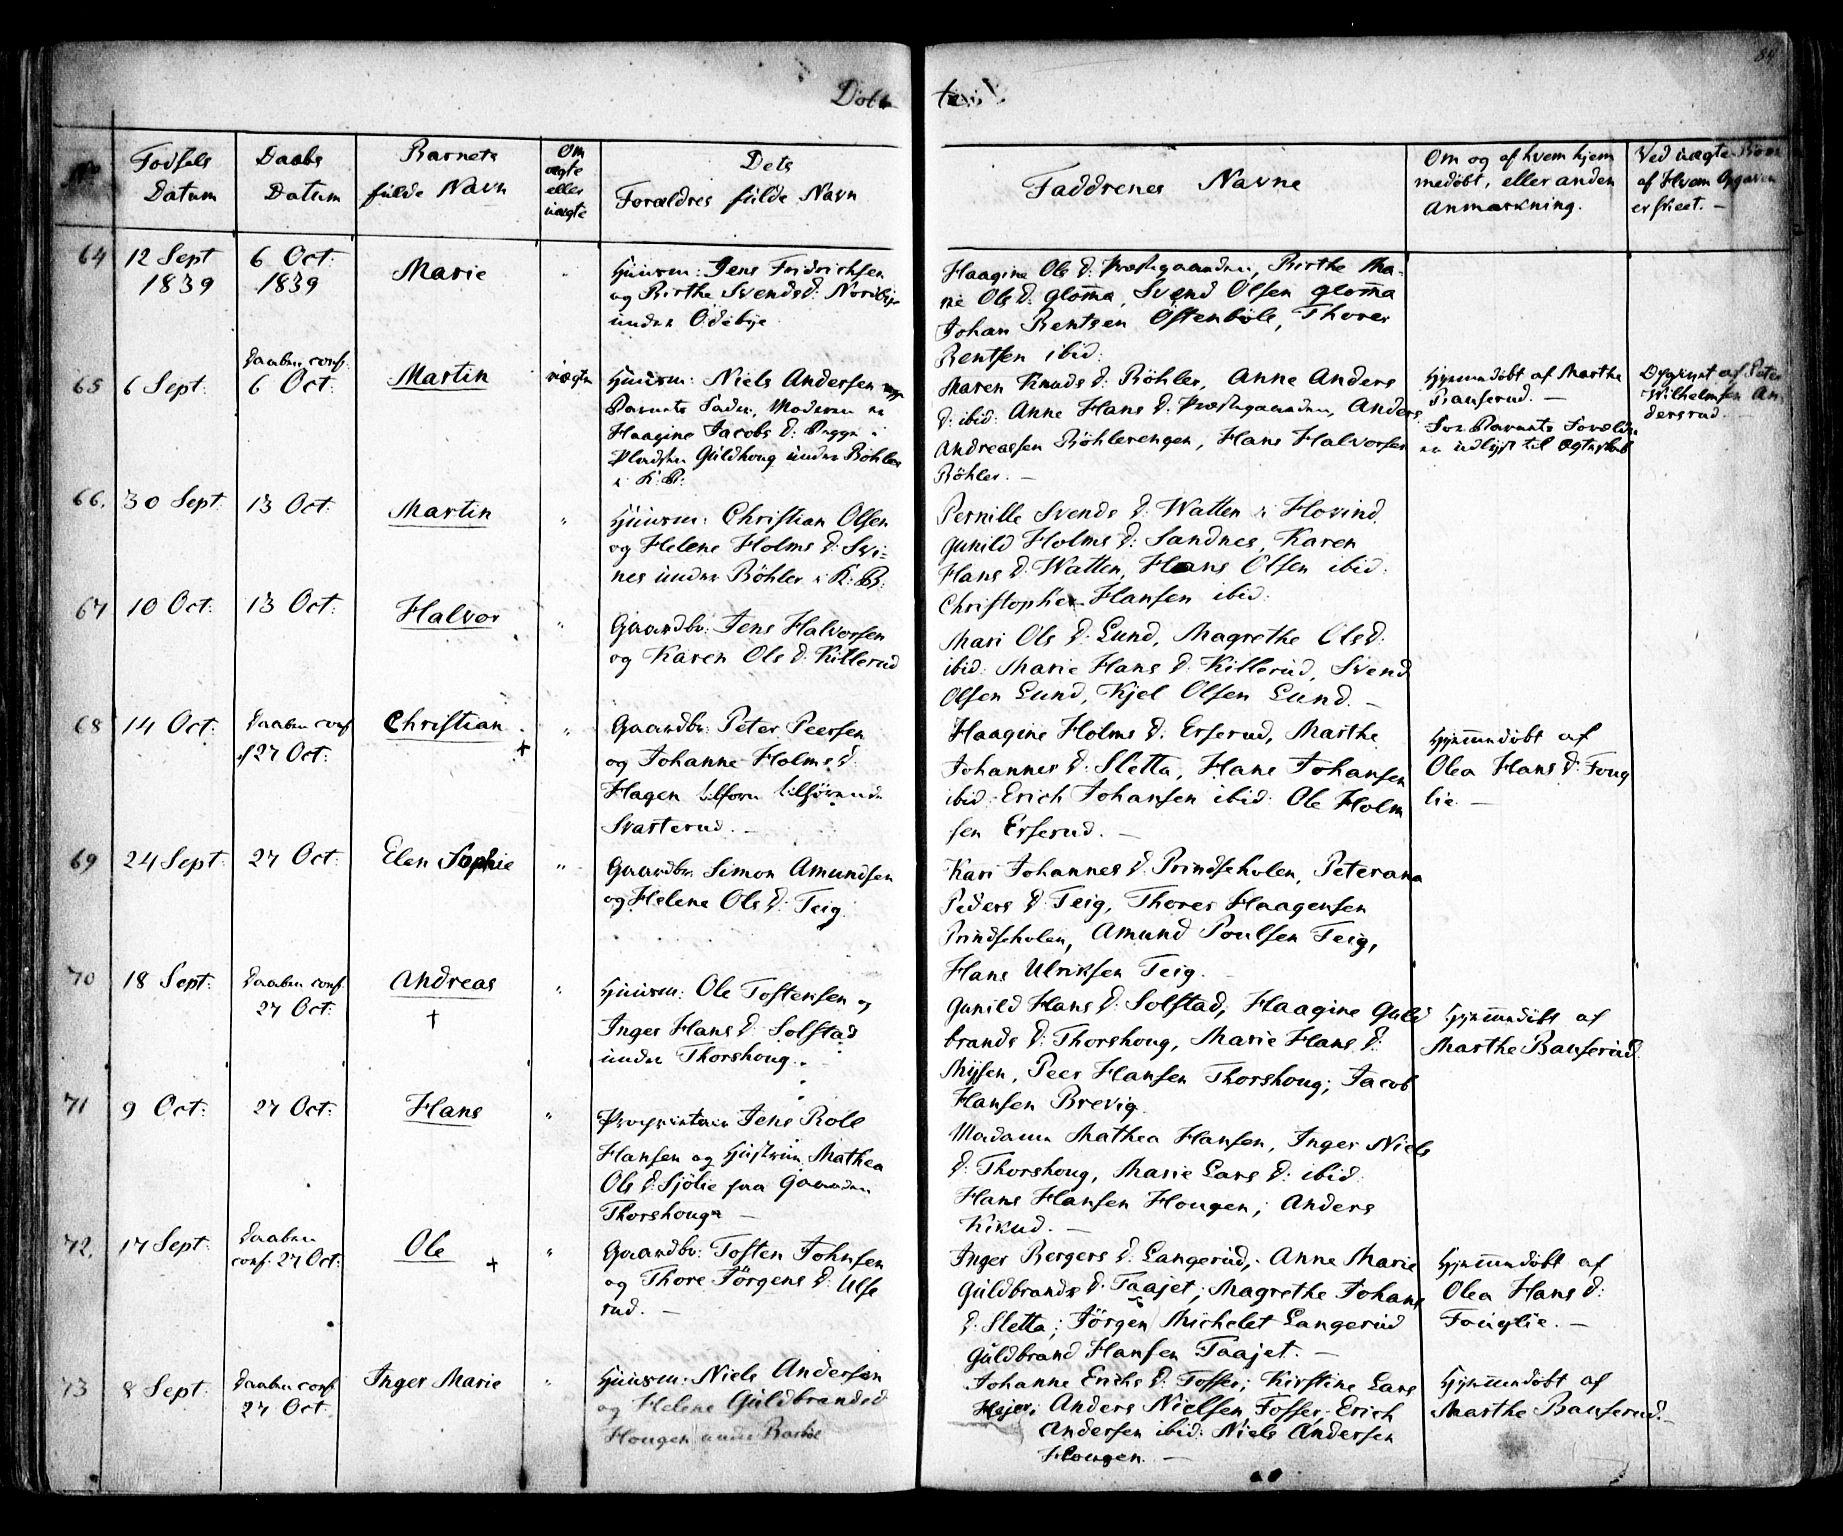 84
Døbte
No
Fødsels
Datum
Daabs
Datum
Barnets
fulde Navn
Om
ægte
eller
uægte
Dets
Forældres fulde Navn
Faddrenes Navne
Om og af hvem hjem
medøbt, eller anden
Anmærkning.
Ved uægte Børn
af Hvem Opgaven
er skeet. -
64
12 Sept
1839
6 Oct:
1839
Marie
"
Huusm: Jens Fridrichsen
og Birthe Svends d: Nordbye
under Ødebye
Haagine Ols d: Præstegaarden, Birthe Ma-
rie Ols d: Glomma, Svend Olsen Glomma
Johan Bentsen Östenböle, Thorer
Bentsen ibid:
65
6 Sept:
Daaben conf.
6 Oct:
Martin
uægte
Huusm: Niels Andersen
Barnets Fader, Moderen er
Haagine Jacobs d: Begge i
Pladsen Guldhoug under Böhler
i K: B:
Maren Knuds d: Böhler, Anne Anders
d: ibid: Anne Hans d: Præstegaarden, Anders
Andreassen Böhlerengen, Hans Halvorsen
Böhler. -
Hjemmedøbt af Marthe
Bauserud. -
For Barnets Forældre
er udlyst til Ægteskab
Opgivet af Peter
Wilhelmsen An-
dersrud.
66.
30 Sept
13 Oct:
Martin
"
Huusm: Christian Olsen
og Helene Holms d: Svi-
nes under Böhler i K: B:
Pernille Svends d: Watten i Hovind
Gunild Holms d: Sandnes, Karen
Hans d: Watten, Hans Olsen ibid:
Christopher Hansen ibid:
67
10 Oct:
13 Oct:
Halvor
"
Gaardbr: Jens Halvorsen
og Karen Ols d: Killerud
Mari Ols d: Lund, Magrethe Ols d:
ibid: Marie Hans d: Killerud, Svend
Olsen Lund, Kjel Olsen Lund. -
68
14 Oct:
Daaben conf
d 27 Oct:
Christian
+
"
Gaardbr: Peter Peersen
og Johanne Holms d:
Hagen tilforn tilhørende
Svarterud. -
Haagine Holms d: Erserud, Marthe
Johannes d: Sletta, Hans Johansen
ibid: Erich Johansen ibid: Ole Holm
sen Erserud. -
Hjemmedøbt af
Olea Hans d: Foug
lie. -
69
24 Sept:
27 Oct:
Elen Sophie
"
Gaardbr. Simon Amundsen
og Helene Ols d: Teig.
Kari Johannes d: Prindseholen, Peterana
Peders d: Teig, Thorer Haagensen
Prindseholen, Amund Poulsen Teig,
Hans Ulriksen Teig. -
70
18 Sept:
Daaben conf.
27 Oct:
Andreas
+
"
Huusm: Ole Tostensen og
Inger Hans d: Solstad
under Thorshoug. -
Gunild Hans d: Solstad, Haagine Guld
brands d: Thorshoug, Marie Hans d:
Mysen, Peer Hansen Thorshoug; Jacob
Hansen Brevig.
Hjemmedøbt af
Marthe Bauserud.
71
9 Oct:
27 Oct:
Hans
"
Proprietair Jens Roll
Hansen og Hustrue Mathea
Ols d: Sjölie paa Gaarden
Thorshoug -
Madame Mathea Hansen, Inger Niels
d: Thorshoug, Marie Lars d: ibid:
Hans Hansen Hougen; Anders
Kikud. -
72.
17 Sept:
Daaben
conf. 27 Oct:
Ole
+
"
Gaardbr: Tosten Johnsen
og Thore Jörgens d: Ulse
rud. -
Inger Bergers d: Langerud, Anne Marie
Guldbrands d: Taajet, Magrethe Johans
d: Sletta; Jörgen Michelet Langerud
Guldbrand Hansen Taajet. -
Hjemmedøbt af
Olea Hans d:
Fouglie. -
73
8 Sept:
Daaben conf
27 Oct.
Inger Marie
"
Huusm: Niels Andersen
og Helene Guldbrandsd
Hougen under
Johanne Erichs d: Fosser; Kirstine Lars
Anders Nielsen Fosser, Erich
Andersen ibid: Niels Andersen
Hougen. -
Hjemmedøbt af
Marthe Bauserud. -